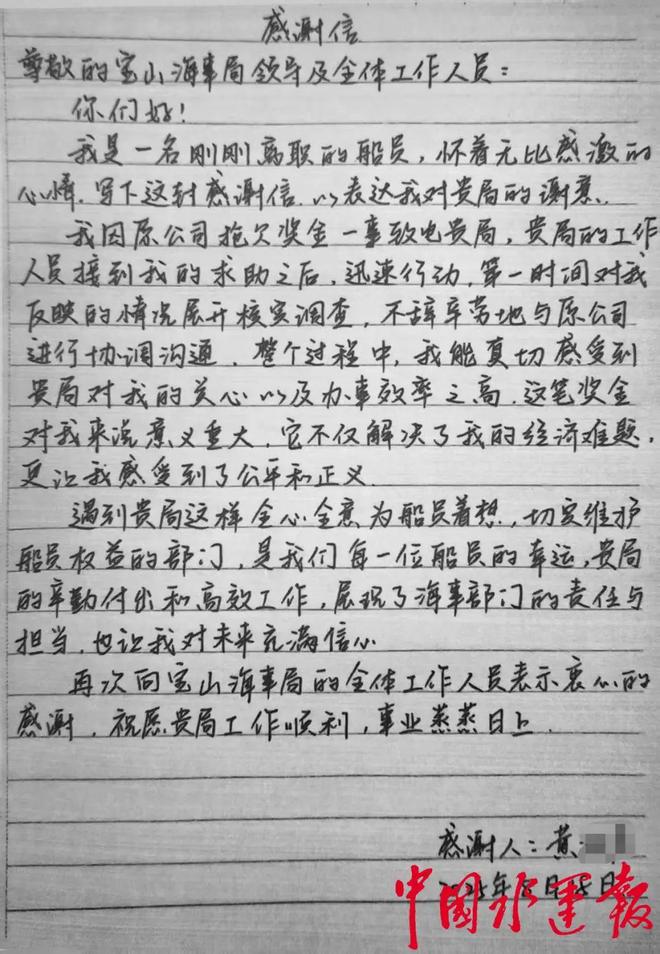 感谢信
尊敬的宝山海事局领导及全体工作人员：
你们好！
我是一名刚刚离职的船员，怀着无比感激的
心情，写下这封感谢信，以表达我对贵局的谢意。
我因原公司拖欠奖金一事致电贵局，贵局的工作
人员接到我的求助之后，迅速行动，第一时间对我
反映的情况展开核实调查，不辞辛劳地与原公司
进行协调沟通，整个过程中，我能真切感受到
贵局对我的关心以及办事效率之高，这笔奖金
对我来说意义重大，它不仅解决了我的经济难题，
更让我感受到了公平和正义
遇到贵局这样全心全意为船员着想，切实维护
船员权益的部门，是我们每一位船员的幸运，贵局
的辛勤付出和高效工作，展现了海事部门的责任与
担当，也让我对未来充满信心
再次向宝山海事局的全体工作人员表示衷心的
感谢，祝愿贵局工作顺利，事业蒸蒸日上．
感谢人：黄
年 月 日
中国水运报